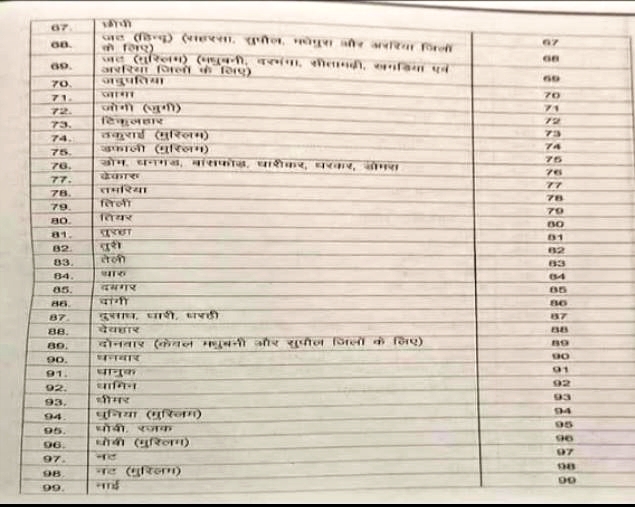 67. छीपी 67
68. जट (हिन्दू) (सहरसा, सुपौल, मधेपुरा और अररिया जिलों
के लिए) 68
69. जट (मुस्लिम) (मधुबनी, दरभंगा, सीतामढ़ी, खगड़िया एवं
अररिया जिलों के लिए) 69
70. जदुपतिया 70
71. जागा 71
72. जोगी (जुगी) 72
73. टिकुलहार 73
74. ठकुराई (मुस्लिम) 74
75. डफाली (मुस्लिम) 75
76. डोम, धनगड, बांसफोड, धारीकर, धरकर, डोमरा 76
77. ढेकारू 77
78. तमरिया 78
79. तिली 79
80. तियर 80
81. तुरहा 81
82. तुरी 82
83. तेली 83
84. थारु 84
85. दबगर 85
86. दांगी 86
87. दुसाध, धारी, धरही 87
88. देवहार 88
89. दोनवार (केवल मधुबनी और सुपौल जिलों के लिए) 89
90. धनवार 90
91. धानुक 91
92. धामिन 92
93. धीमर 93
94. धुनिया (मुस्लिम) 94
95. धोबी, रजक 95
96. धोबी (मुस्लिम) 96
97. नट 97
98. नट (मुस्लिम) 98
99. नाई 99